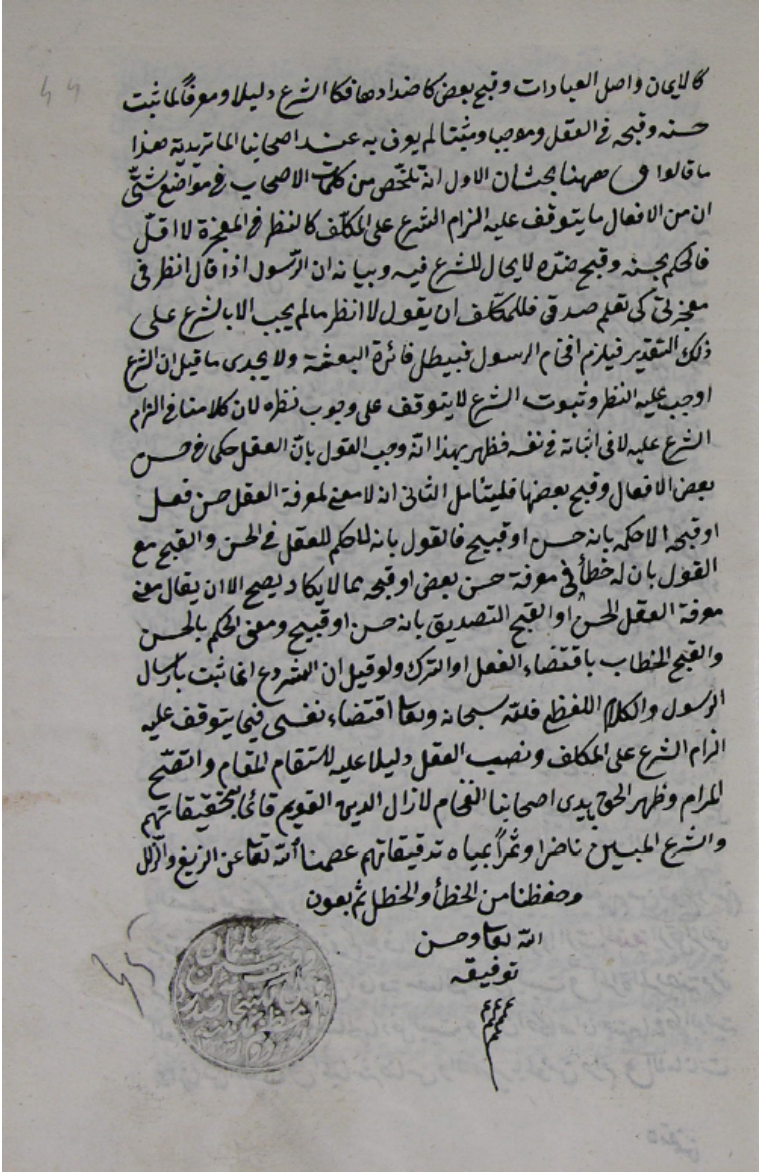 كالايمان واصل العبادات وقبح بعض كاضدادها فكا الشرع دليلا ومعرفا لما ثبت
حسنه وقبحه فى العقل وموجبا ومثبتا لما لم يعرف به عند اصحابنا الماتريدية هذا
ما قالوا ههنا بحثان الاول انه تلخص من كلمات الاصحاب فى مواضع شتى
ان من الافعال ما يتوقف عليه الزام الشرع على المكلف كالنظر فى المعجزة لا اقل
فالحكم بحسنه وقبح ضده لا يحال للشرع فيه وبيانه ان الرسول اذا قال انظر فى
معجزتى كى تعلم صدقى فللمكلف ان يقول لا انظر ما لم يجب الا بالشرع على
ذلك التقدير فيلزم افحام الرسول فيبطل فائدة البعثة ولا يجدى ما قيل ان الشرع
اوجب عليه النظر وثبوت الشرع لا يتوقف على وجوب نظره لان كلامنا فى الزام
الشرع عليه لا فى اثباته فى نفسه فظهر بهذا انه وجب القول بان العقل حكما فى حسن
بعض الافعال وقبح بعضها فليتأمل الثانى انه لا معنى لمعرفة العقل حسن فعل
او قبحه الا حكمه بانه حسن او قبيح فالقول بانه لا حكم للعقل فى الحسن والقبح مع
القول بان له خطأ فى معرفة حسن بعض او قبحه مما لا يكاد يصح الا ان يقال معنى
معرفة العقل الحسن او القبح التصديق بانه حسن او قبيح ومعنى الحكم بالحسن
والقبح الخطاب باقتضاء الفعل او الترك ولو قيل ان المشروع انما ثبت بارسال
الرسول والكلام اللفظى فلله سبحانه وتعا اقتضاء نفسى فيما يتوقف عليه
الزام الشرع على المكلف ونصب العقل دليلا عليه لاستقام المقام واتضح
المرام وظهر الحق بيدى اصحابنا الفخام لا زال الدين القويم قائما بتحقيقاتهم
والشرع المبين ناضرا ومثمرا بمياه تدقيقاتهم عصمنا الله تعا عن الزيغ والزلل
وحفظنا من الخطأ والخطل تم بعون
الله تعا وحسن
توفيقه